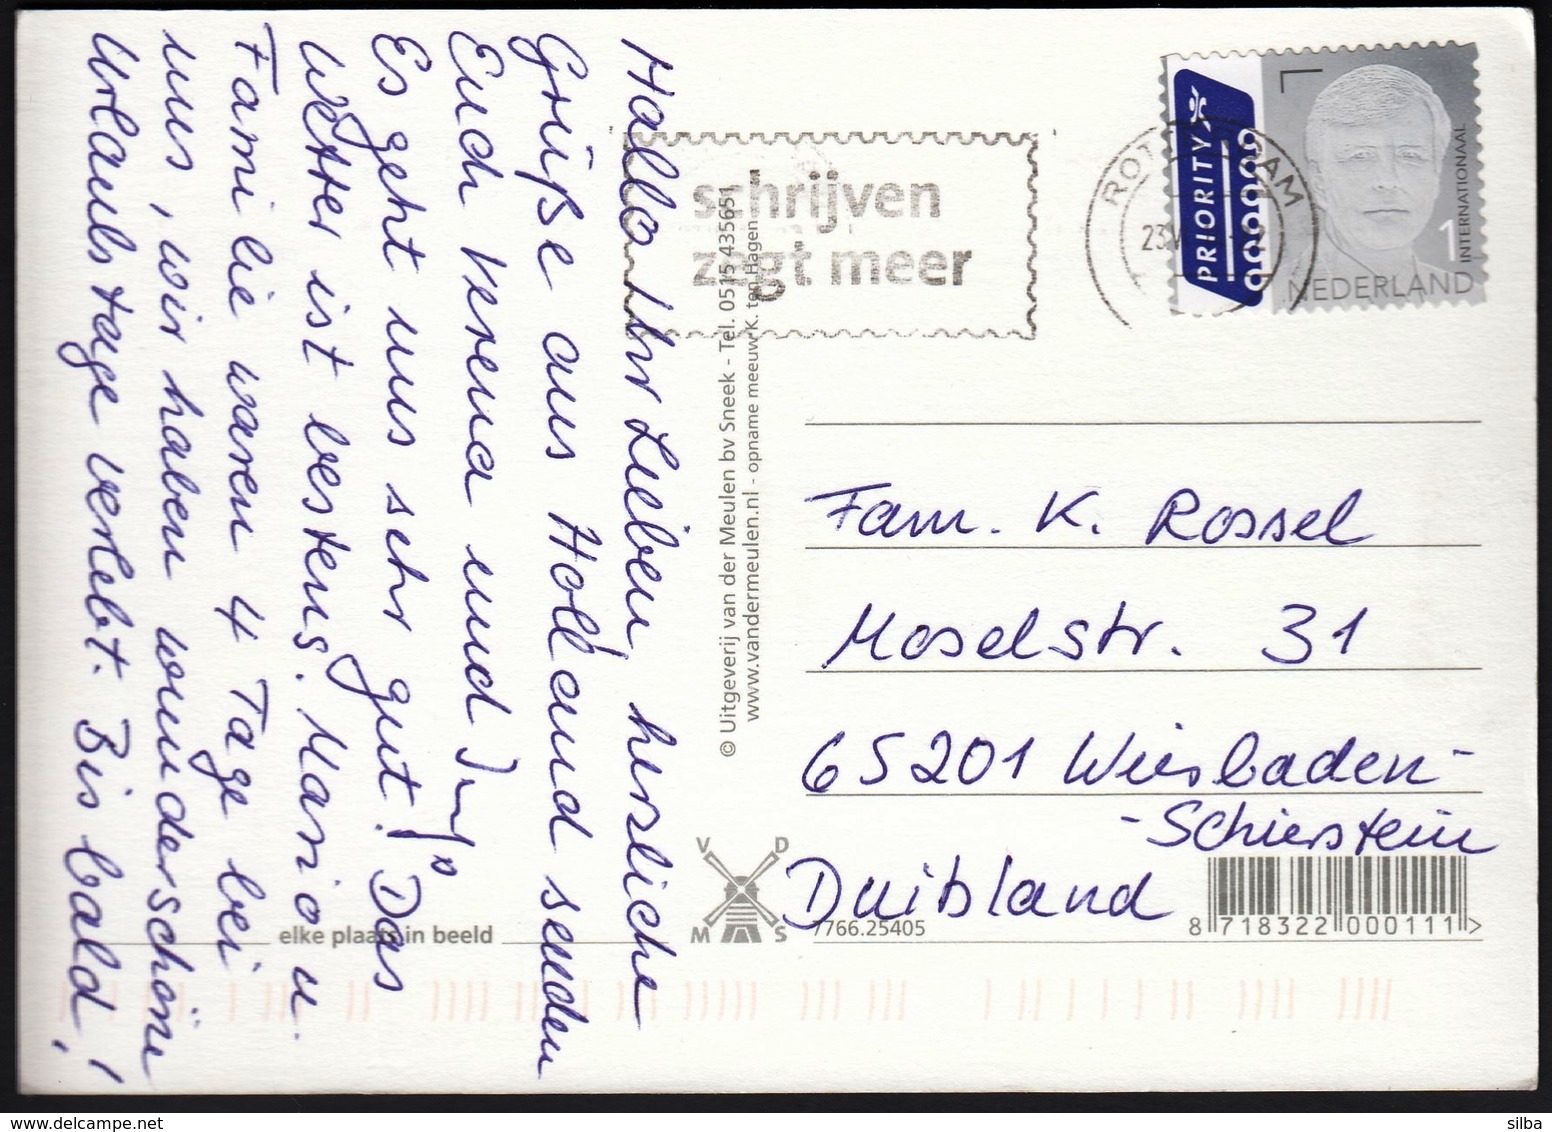 Hallo Ihr Lieben, herzliche
Grüße aus Holland senden
Euch Verena und
Es geht uns sehr gut! Das
Wetter ist bestens. Marion u.
Familie waren 4 Tage bei
uns, wir haben wunderschöne
Urlaubstage verlebt. Bis bald!
schrijven
zegt meer
© Uitgeverij van der Meulen bv Sneek - Tel. 0515 435651
www.vandermeulen.nl - opname meeuw K. ten Hagen
PRIORITY
1 INTERNATIONAAL
NEDERLAND
ROT DAM
23
Fam. K. Rossel
Moselstr. 31
65201 Wiesbaden-
-Schierstein
Duitsland
V D
M S
elke plaats in beeld
7766.25405
8 718322 000111 >
silba